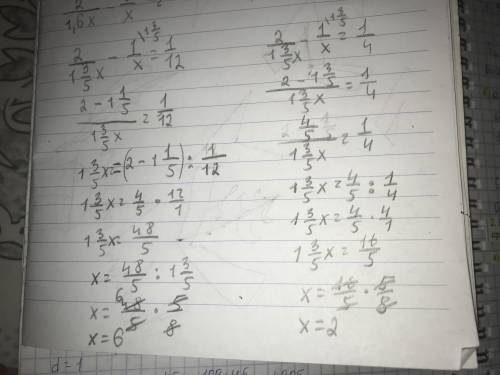 2/(1,6x) -
2/(1 3/5 x) - 1/x \1 3/5 = 1/12
(2 - 1 1/5)/(1 3/5 x) = 1/12
1 3/5 x = (2 - 1 1/5) : 1/12
1 3/5 x = 4/5 · 12/1
1 3/5 x = 48/5
x = 48/5 : 1 3/5
x = 48/5 · 5/8
6
x = 6
2/(1 3/5 x) - 1/x \1 3/5 = 1/4
(2 - 1 3/5)/(1 3/5 x) = 1/4
(4/5)/(1 3/5 x) = 1/4
1 3/5 x = 4/5 : 1/4
1 3/5 x = 4/5 · 4/1
1 3/5 x = 16/5
x = 16/5 · 5/8
x = 2
d = 1